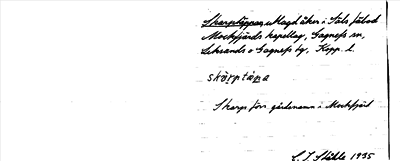 Skarptäppan, uppodl åker i Såls fäbod
Mockfjärds kapellag, Gagnefs sn,
Leksands o Gagnefs tg, Kopp. l.
skàrptäpa
Skarp förr gårdsnamn i Mockfjärd
C. I. Ståhle 1935